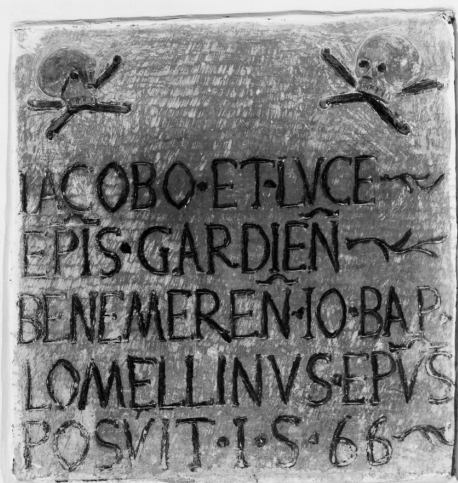 IACOBO·ET·LVCE
EPĪS·GARDIEÑ
BENEMEREÑ·IO·BAP̃·
LOMELLINVS·EPV̄S
POSVIT·I·S·66